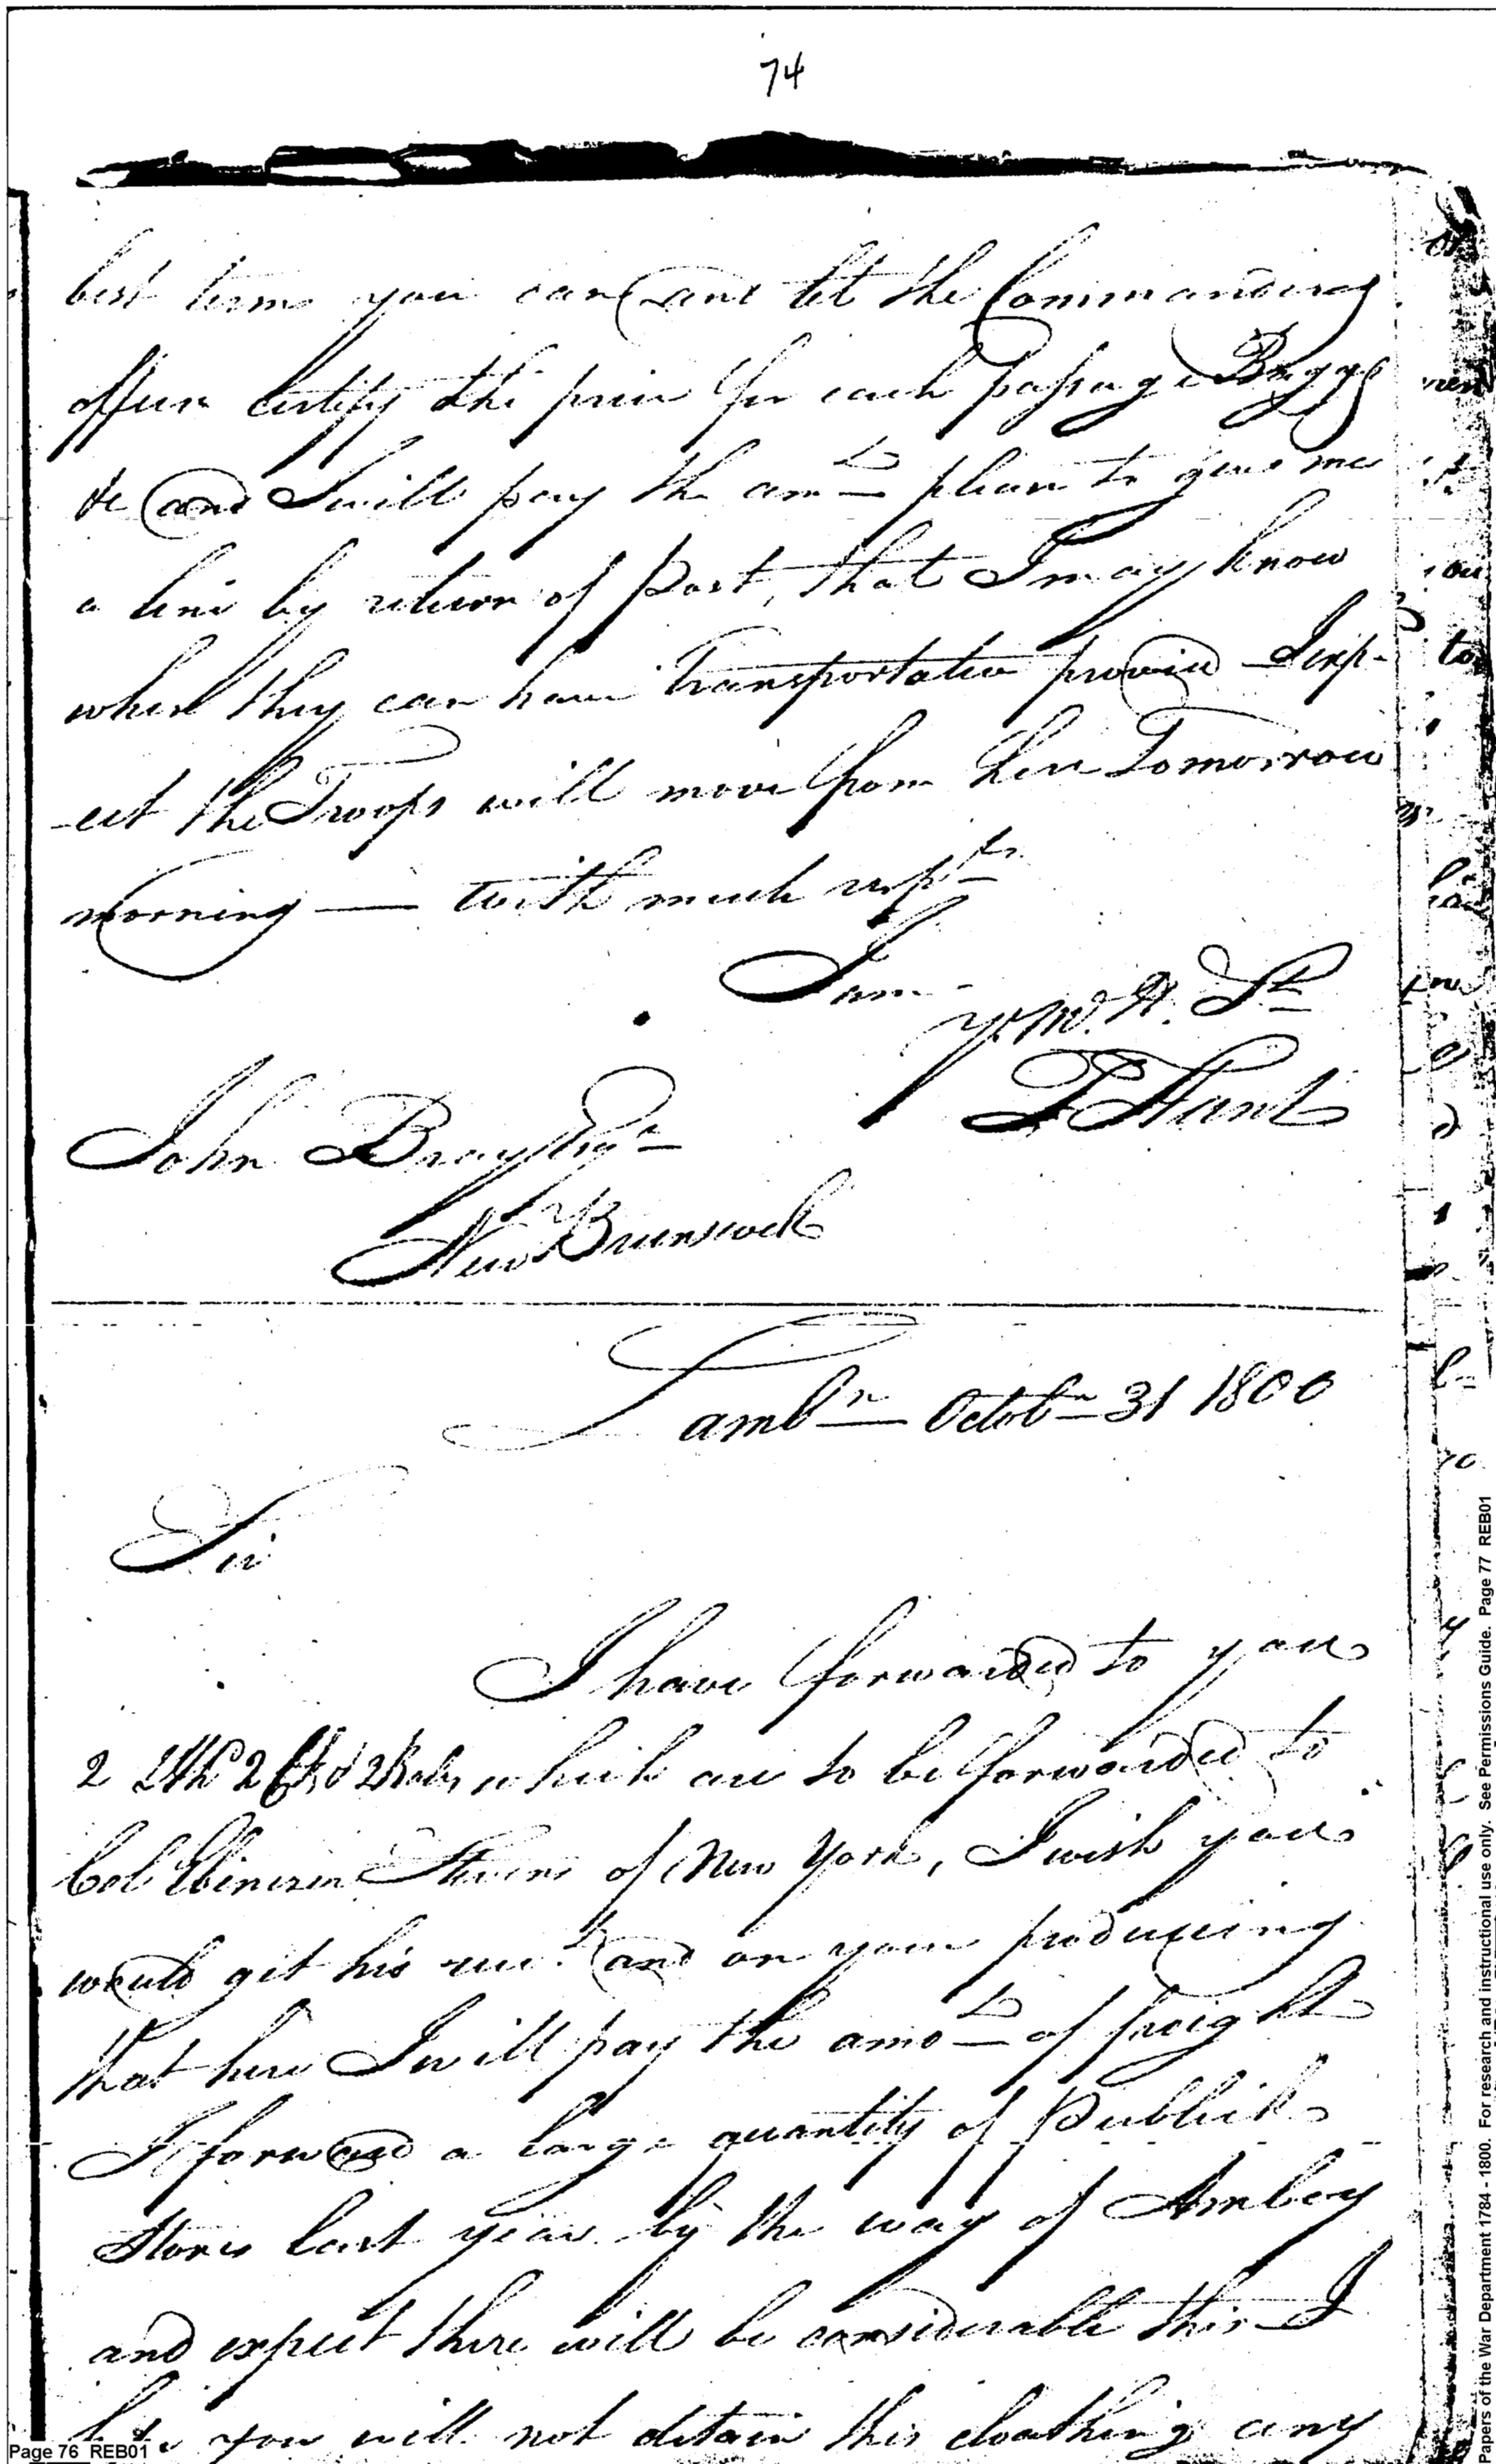 74
best terms you can and let the Commanding
officer certify the price for each passage Bagge
&c and I will pay the amt please to give me
a line by return of Post, that I may know
when they can have Transportation provid I exp-
-ect the Troops will move from here Tomorrow
morning — with much respt
I am
yr. M. H. St
T Hunt
John Bray Esqr
New Brunswick
Lambn Octobr 31 1800
Sir
I have forwarded to you
2 2 2 Bales which are to be forwarded to
Col Ebenezer Stevens of New York, I wish you
would get his rect. and on your producing
that here I will pay the amot of freight
I forward a large quantity of Publick
Stores last year by the way of Amboy
and expect there will be considerable this I
you will not detain this cloathing any
Page 76 REB01
Papers of the War Department 1784 - 1800. For research and instructional use only. See Permissions Guide. Page 77 REB01